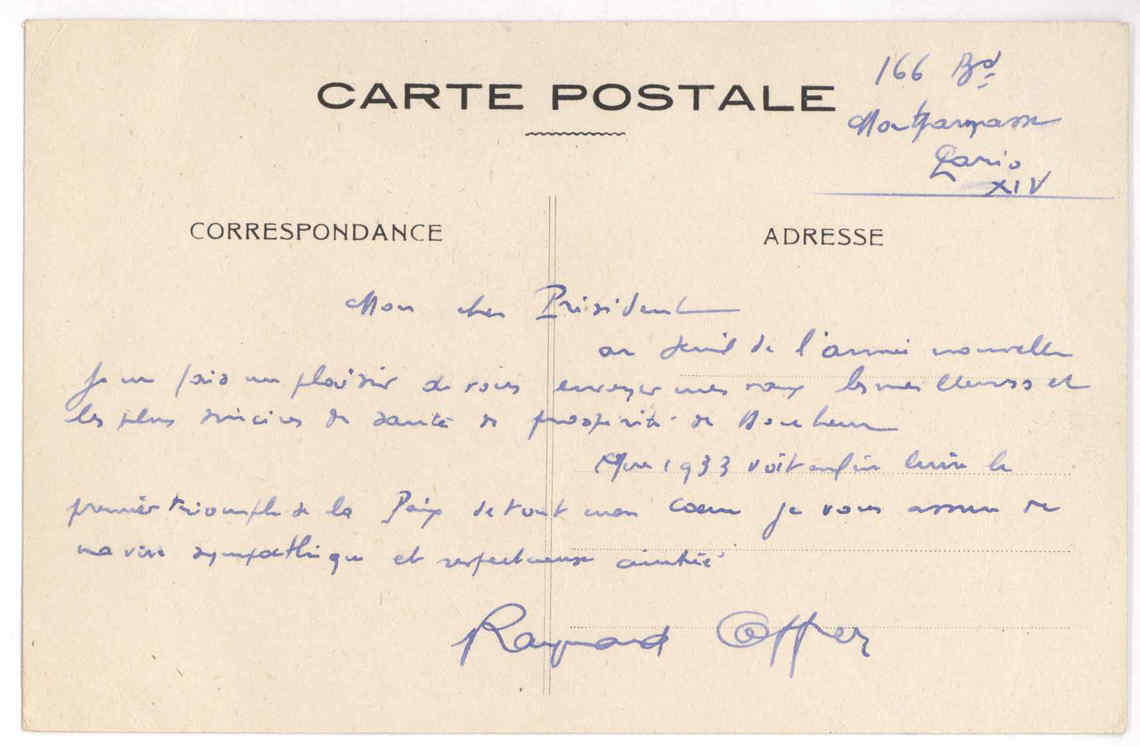 CARTE POSTALE
166 Bd
Montparnasse
Paris
XIV
CORRESPONDANCE
ADRESSE
Mon cher Président
au seuil de l'année nouvelle
Je me fais un plaisir de vous envoyer mes vœux les meilleurs et
les plus sincères de santé de prospérité de Bonheur
Que 1933 voit enfin luire le
premier triomphe de la Paix de tout mon cœur je vous assure de
ma vive sympathique et respectueuse amitié
Raymond Offner